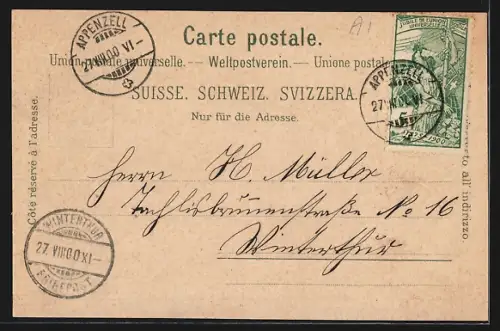 Carte postale.
Union postale universelle. — Weltpostverein. — Unione postale
SUISSE. SCHWEIZ. SVIZZERA.
Nur für die Adresse.
Côté réservé à l'adresse.
riservato all' indirizzo
APPENZELL
27.VII.00.VI-
APPENZELL
27.VII.00.VI-
5
1875 1900
Herrn H. Müller
Tachlisbrunnenstrasse No 16
Winterthur
WINTERTHUR
27.VII.00.XI-
BRIEFPOST
A1